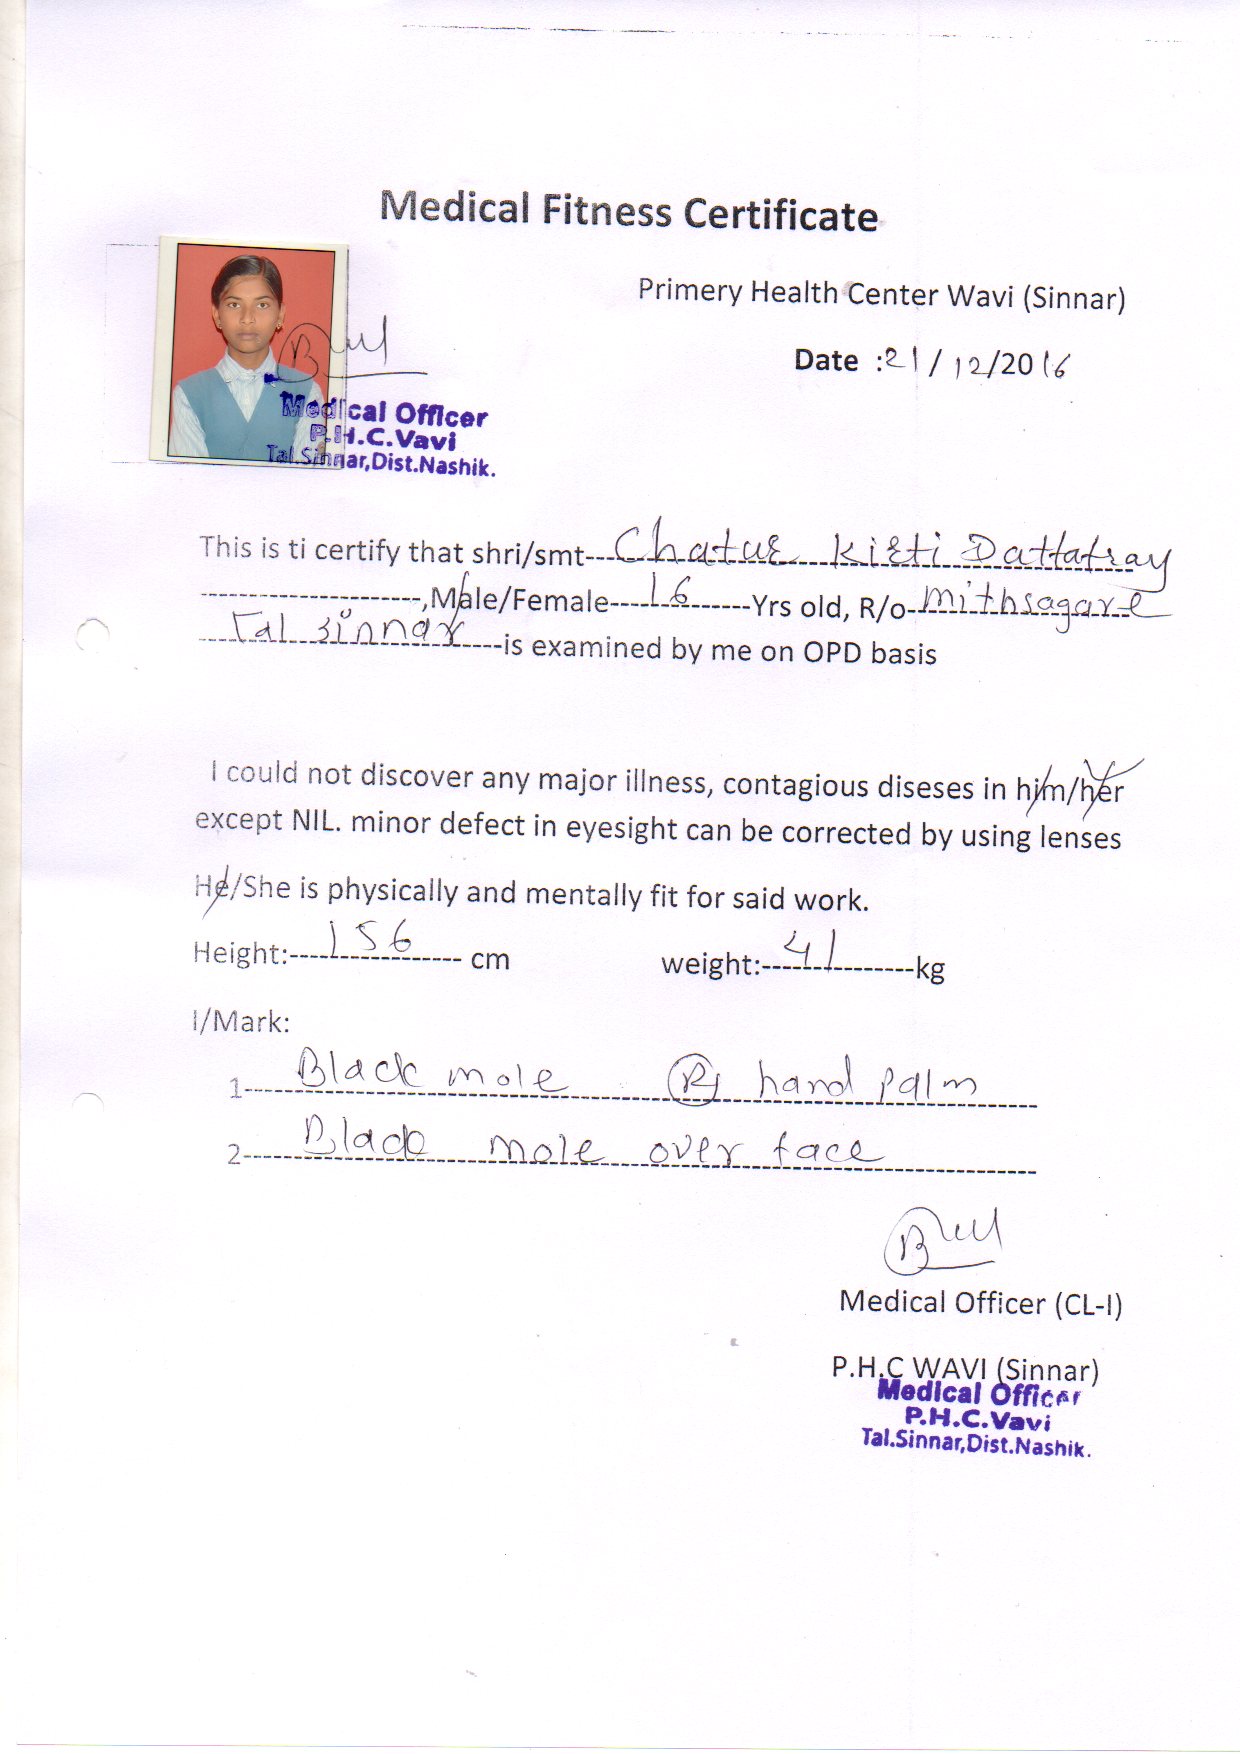 Medical Fitness Certificate
Primery Health Center Wavi (Sinnar)
Date :21/12/2016
Medical Officer
P.H.C.Vavi
Tal.Sinnar,Dist.Nashik.
This is ti certify that shri/smt---Chatur Kirti Dattatray
--------------------,Male/Female----16------Yrs old, R/o-Mithsagare
Tal Sinnar---is examined by me on OPD basis
I could not discover any major illness, contagious diseses in him/her
except NIL. minor defect in eyesight can be corrected by using lenses
He/She is physically and mentally fit for said work.
Height:----156---- cm weight:----41----kg
I/Mark:
1----Black mole (R) hand palm
2----Black mole over face
Medical Officer (CL-I)
P.H.C WAVI (Sinnar)
Medical Officer
P.H.C.Vavi
Tal.Sinnar,Dist.Nashik.